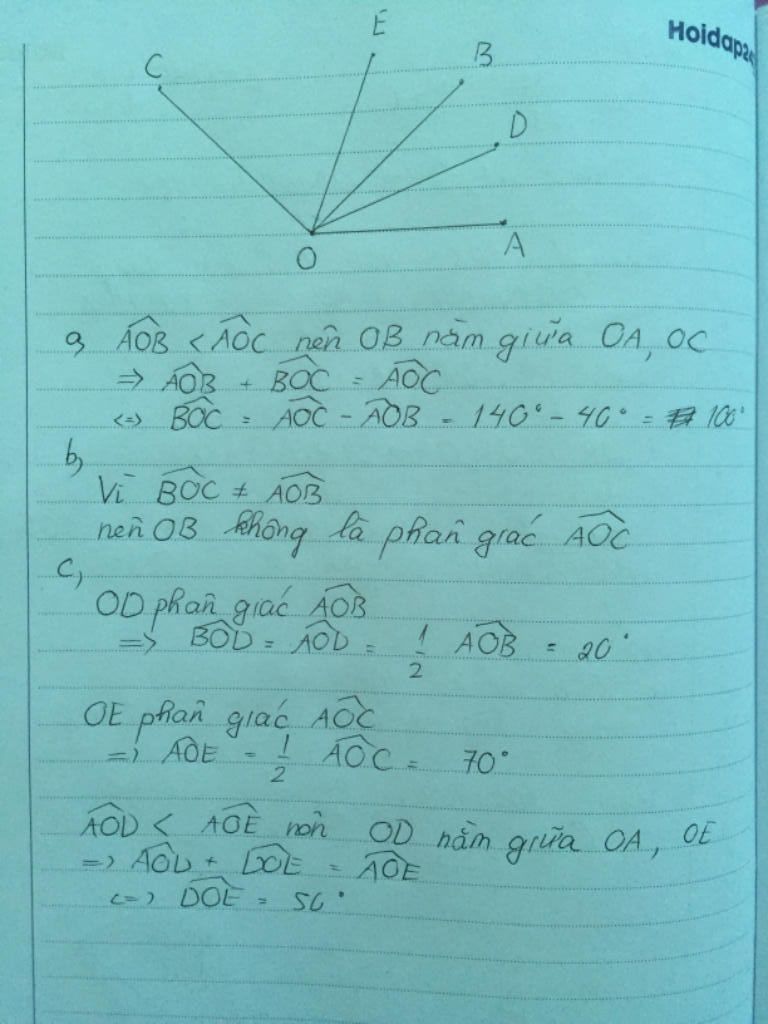 Hoidap2
E
C
B
D
O
A
a, AOB < AOC nên OB nằm giữa OA, OC
=> AOB + BOC = AOC
<=> BOC = AOC - AOB = 140° - 40° = 100°
b,
Vì BOC ≠ AOB
nên OB không là phân giác AOC
c,
OD phân giác AOB
=> BOD = AOD = 1/2 AOB = 20°
OE phân giác AOC
=> AOE = 1/2 AOC = 70°
AOD < AOE nên OD nằm giữa OA, OE
=> AOD + DOE = AOE
<=> DOE = 50°